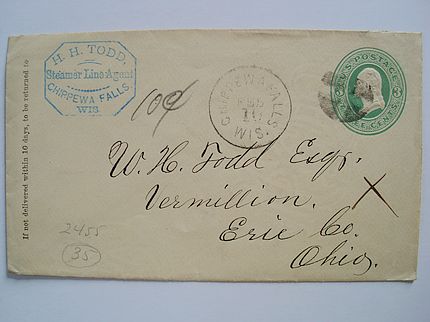 If not delivered within 10 days, to be returned to
H. H. TODD,
Steamer Line Agent
CHIPPEWA FALLS,
WIS.
10¢
CHIPPEWA FALLS.
FEB
10
WIS.
U.S. POSTAGE
3
THREE CENTS
W. H. Todd Esqr.
Vermillion.
Erie Co.
Ohio.
X
2455
35